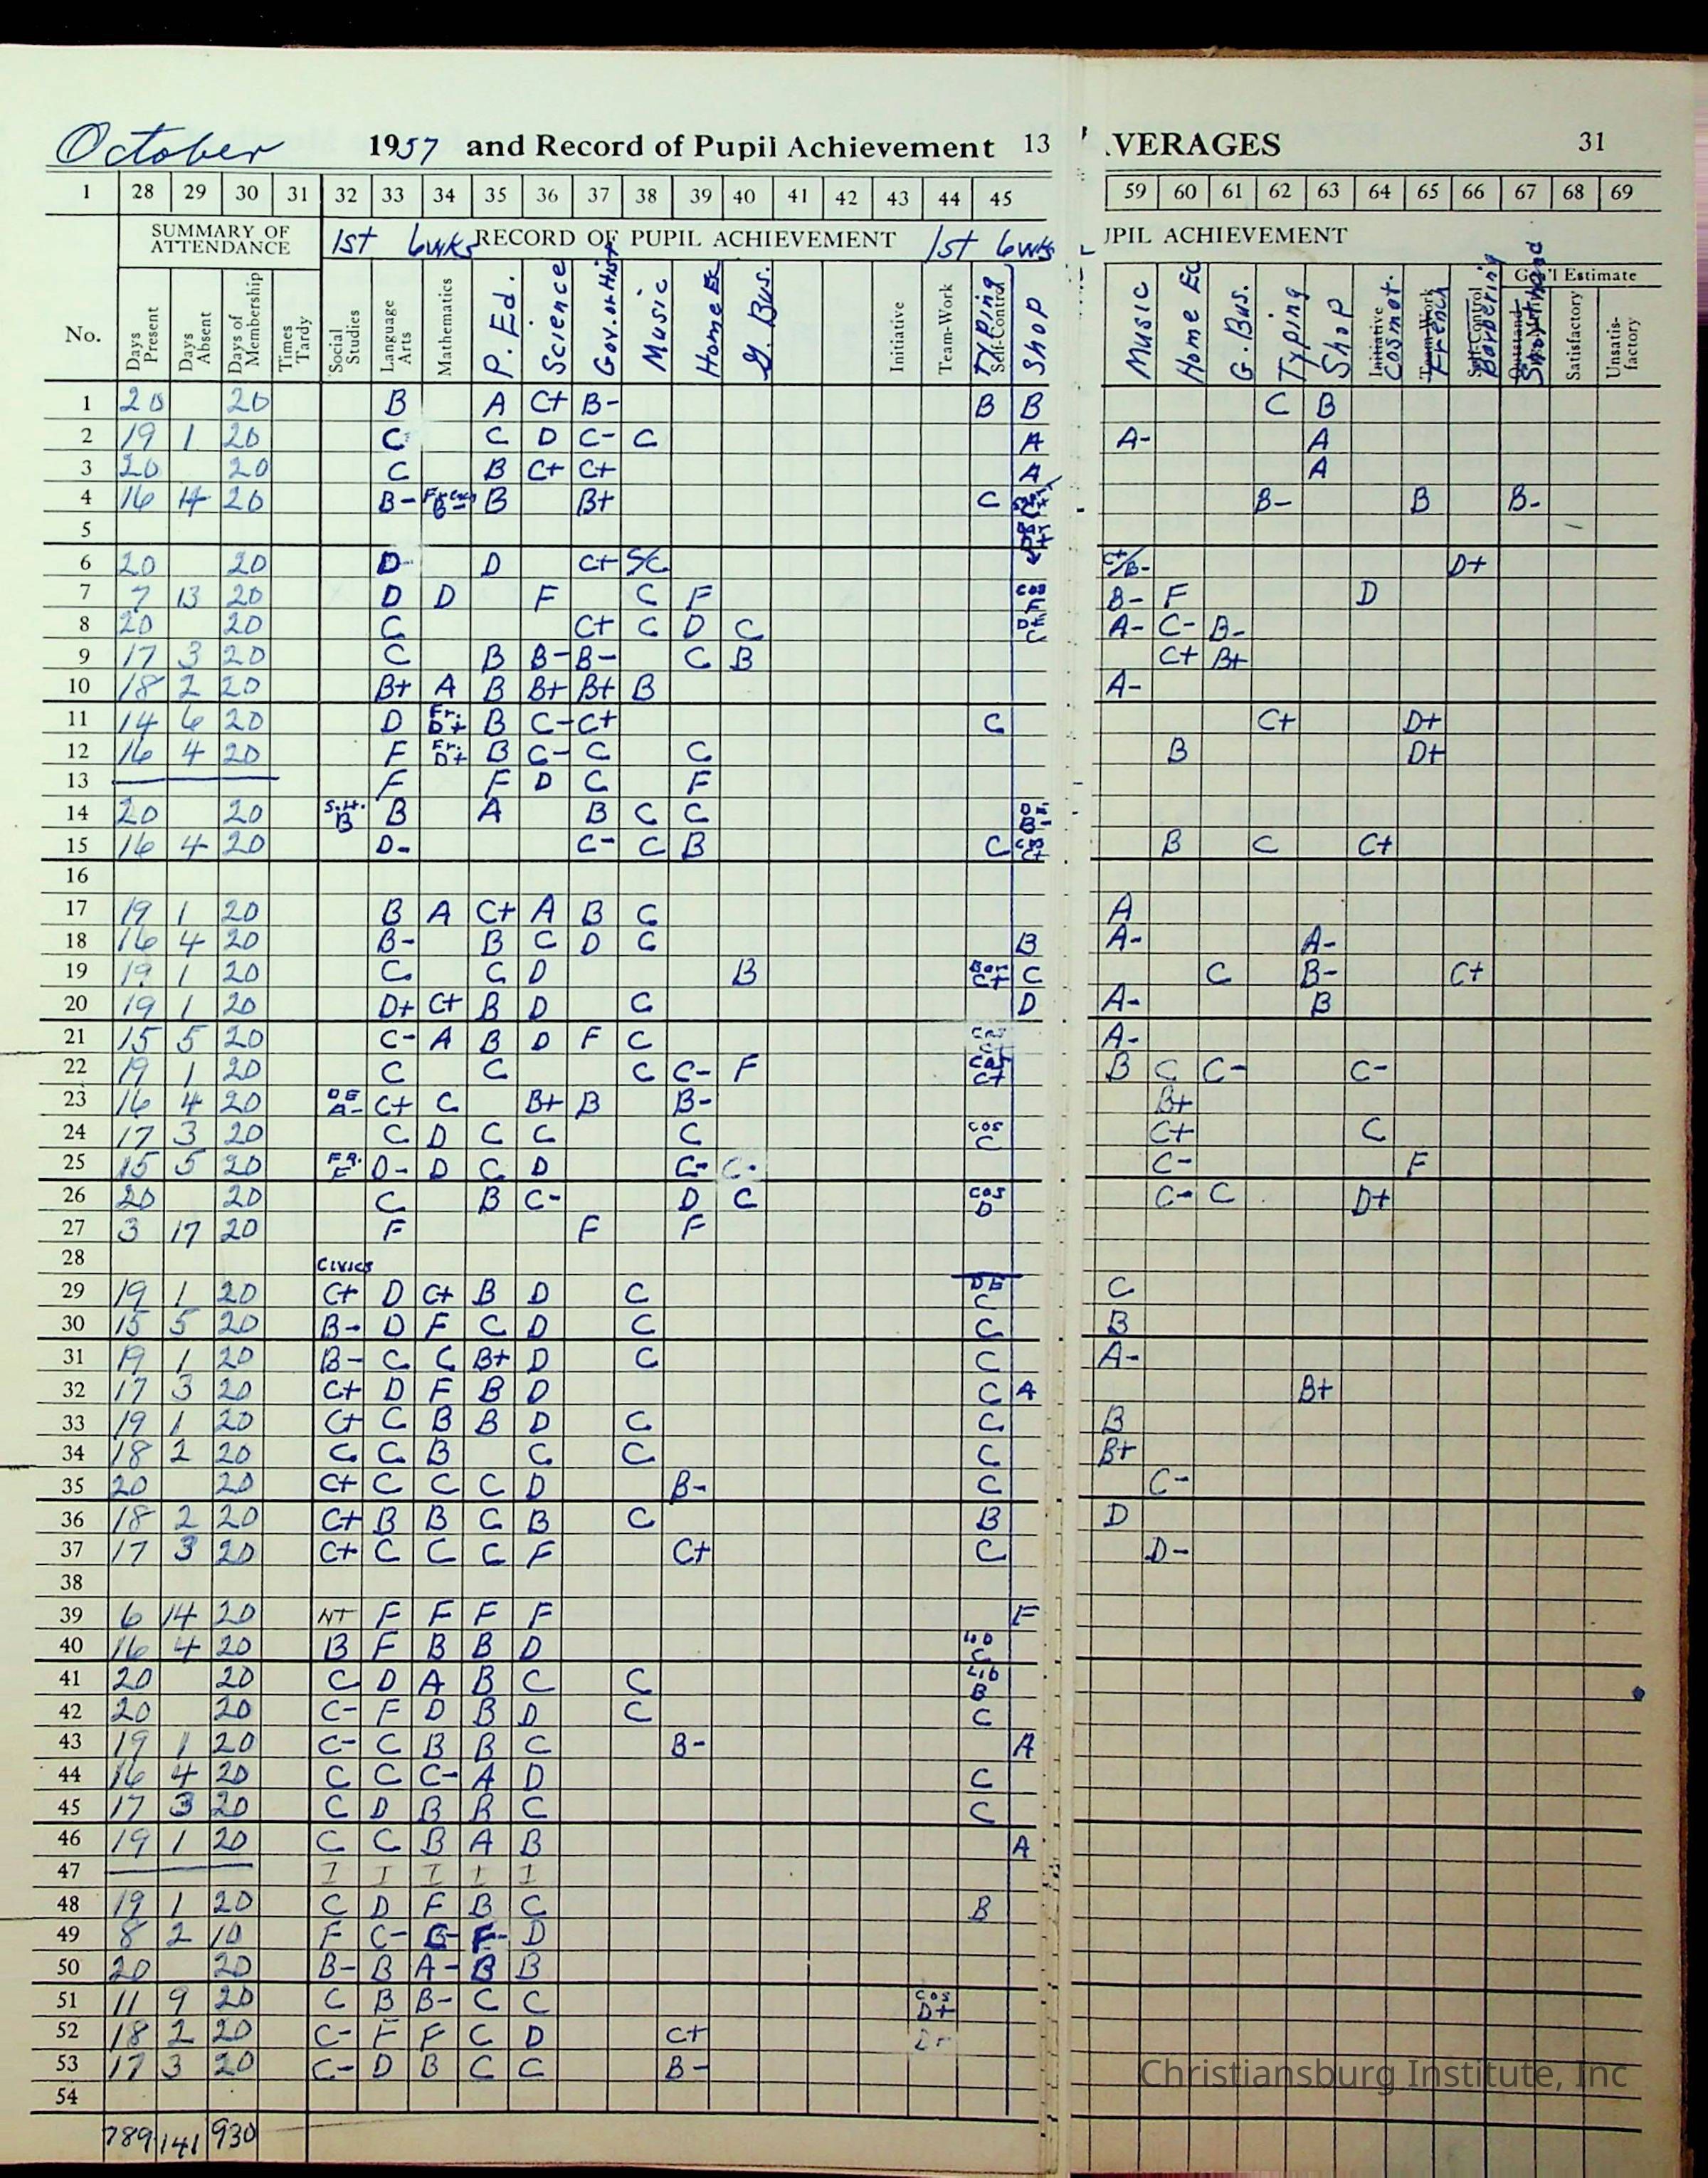 October 1957 and Record of Pupil Achievement 13
VERAGES 31
1 28 29 30 31 32 33 34 35 36 37 38 39 40 41 42 43 44 45
59 60 61 62 63 64 65 66 67 68 69
SUMMARY OF ATTENDANCE 1st 6wks RECORD OF PUPIL ACHIEVEMENT 1st 6wks
UPIL ACHIEVEMENT
Gen'l Estimate
No. Days Present Days Absent Days of Membership Times Tardy Social Studies Language Arts Mathematics P. Ed. Science Gov. or Hist Music Home Ec G. Bus. Initiative Team-Work Typing Self-Control Shop
Music Home Ec G. Bus. Typing Shop Initiative Cosmot. Team-Work French Self-Control Barbering Outstand- Shorthand Satisfactory Unsatis-factory
1 20 20 B A C+ B- B B C B
2 19 1 20 C C D C- C A A- A
3 20 20 C B C+ C+ A A
4 16 4 20 B- B- B B+ C B- B B-
5
6 20 20 D- D C+ S/C C+/B- D+
7 7 13 20 D D F C F cos F B- F D
8 20 20 C C+ C D C DE C A- C- B-
9 17 3 20 C B B- B- C B C+ B+
10 18 2 20 B+ A B B+ B+ B A-
11 14 6 20 D Fr. D+ B C- C+ C C+ D+
12 16 4 20 F Fr. D+ B C- C C B D+
13 F F D C F
14 20 20 S.H. B B A B C C DE B-
15 16 4 20 D- C- C B C C+ B C C+
16
17 19 1 20 B A C+ A B C A
18 16 4 20 B- B C D C B A- A-
19 19 1 20 C C D B Bar C+ C C B- C+
20 19 1 20 D+ C+ B D C D A- B
21 15 5 20 C- A B D F C cos A-
22 19 1 20 C C C C- F cos C+ B C C- C-
23 16 4 20 DE A- C+ C B+ B B- B+
24 17 3 20 C D C C C cos C C+ C
25 15 5 20 FR. F D- D C D C- C- C- F
26 20 20 C B C- D C cos D C- C D+
27 3 17 20 F F F
28 Civics
29 19 1 20 C+ D C+ B D C DE C C
30 15 5 20 B- D F C D C C B
31 19 1 20 B- C C B+ D C C A-
32 17 3 20 C+ D F B D C A B+
33 19 1 20 C+ C B B D C C B
34 18 2 20 C C B C C C B+
35 20 20 C+ C C C D B- C C-
36 18 2 20 C+ B B C B C B D
37 17 3 20 C+ C C C F C+ C D-
38
39 6 14 20 NT F F F F F
40 16 4 20 B F B B D C
41 20 20 C D A B C C Lib B
42 20 20 C- F D B D C C
43 19 1 20 C- C B B C B- A
44 16 4 20 C C C- A D C
45 17 3 20 C D B B C C
46 19 1 20 C C B A B A
47 I I I I I
48 19 1 20 C D F B C B
49 8 2 10 F C- F- D
50 20 20 B- B A- B B
51 11 9 20 C B B- C C cos D+
52 18 2 20 C- F F C D C+
53 17 3 20 C- D B C C B-
54
789 141 930
Christiansburg Institute, Inc